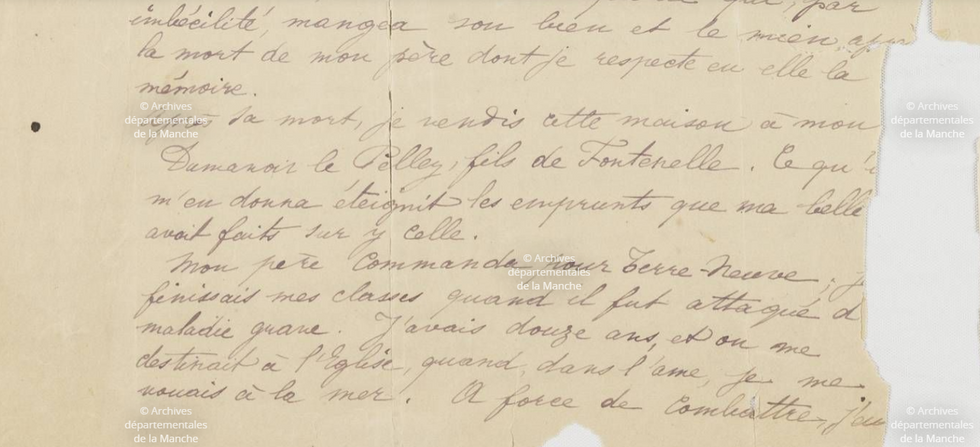 imbécilité, mangea son bien et le mien, apr
la mort de mon père dont je respecte en elle la
mémoire.
Après sa mort, je vendis cette maison à mon
Damanoir le Pelley, fils de Fontenelle. Ce qu'i
m'en donna éteignit les emprunts que ma belle
avait faits sur y celle.
Mon père commanda pour Terre-Neuve, j
finissais mes classes quand il fut attaqué d
maladie grave. J'avais douze ans, et on me
destinait à l'Eglise, quand, dans l'âme, je me
vouais à la mer. A force de combattre, j'eu
© Archives
départementales
de la Manche
© Archives
départementales
de la Manche
© Archives
départementales
de la Manche
© Archives
départementales
de la Manche
© Archives
départementales
de la Manche